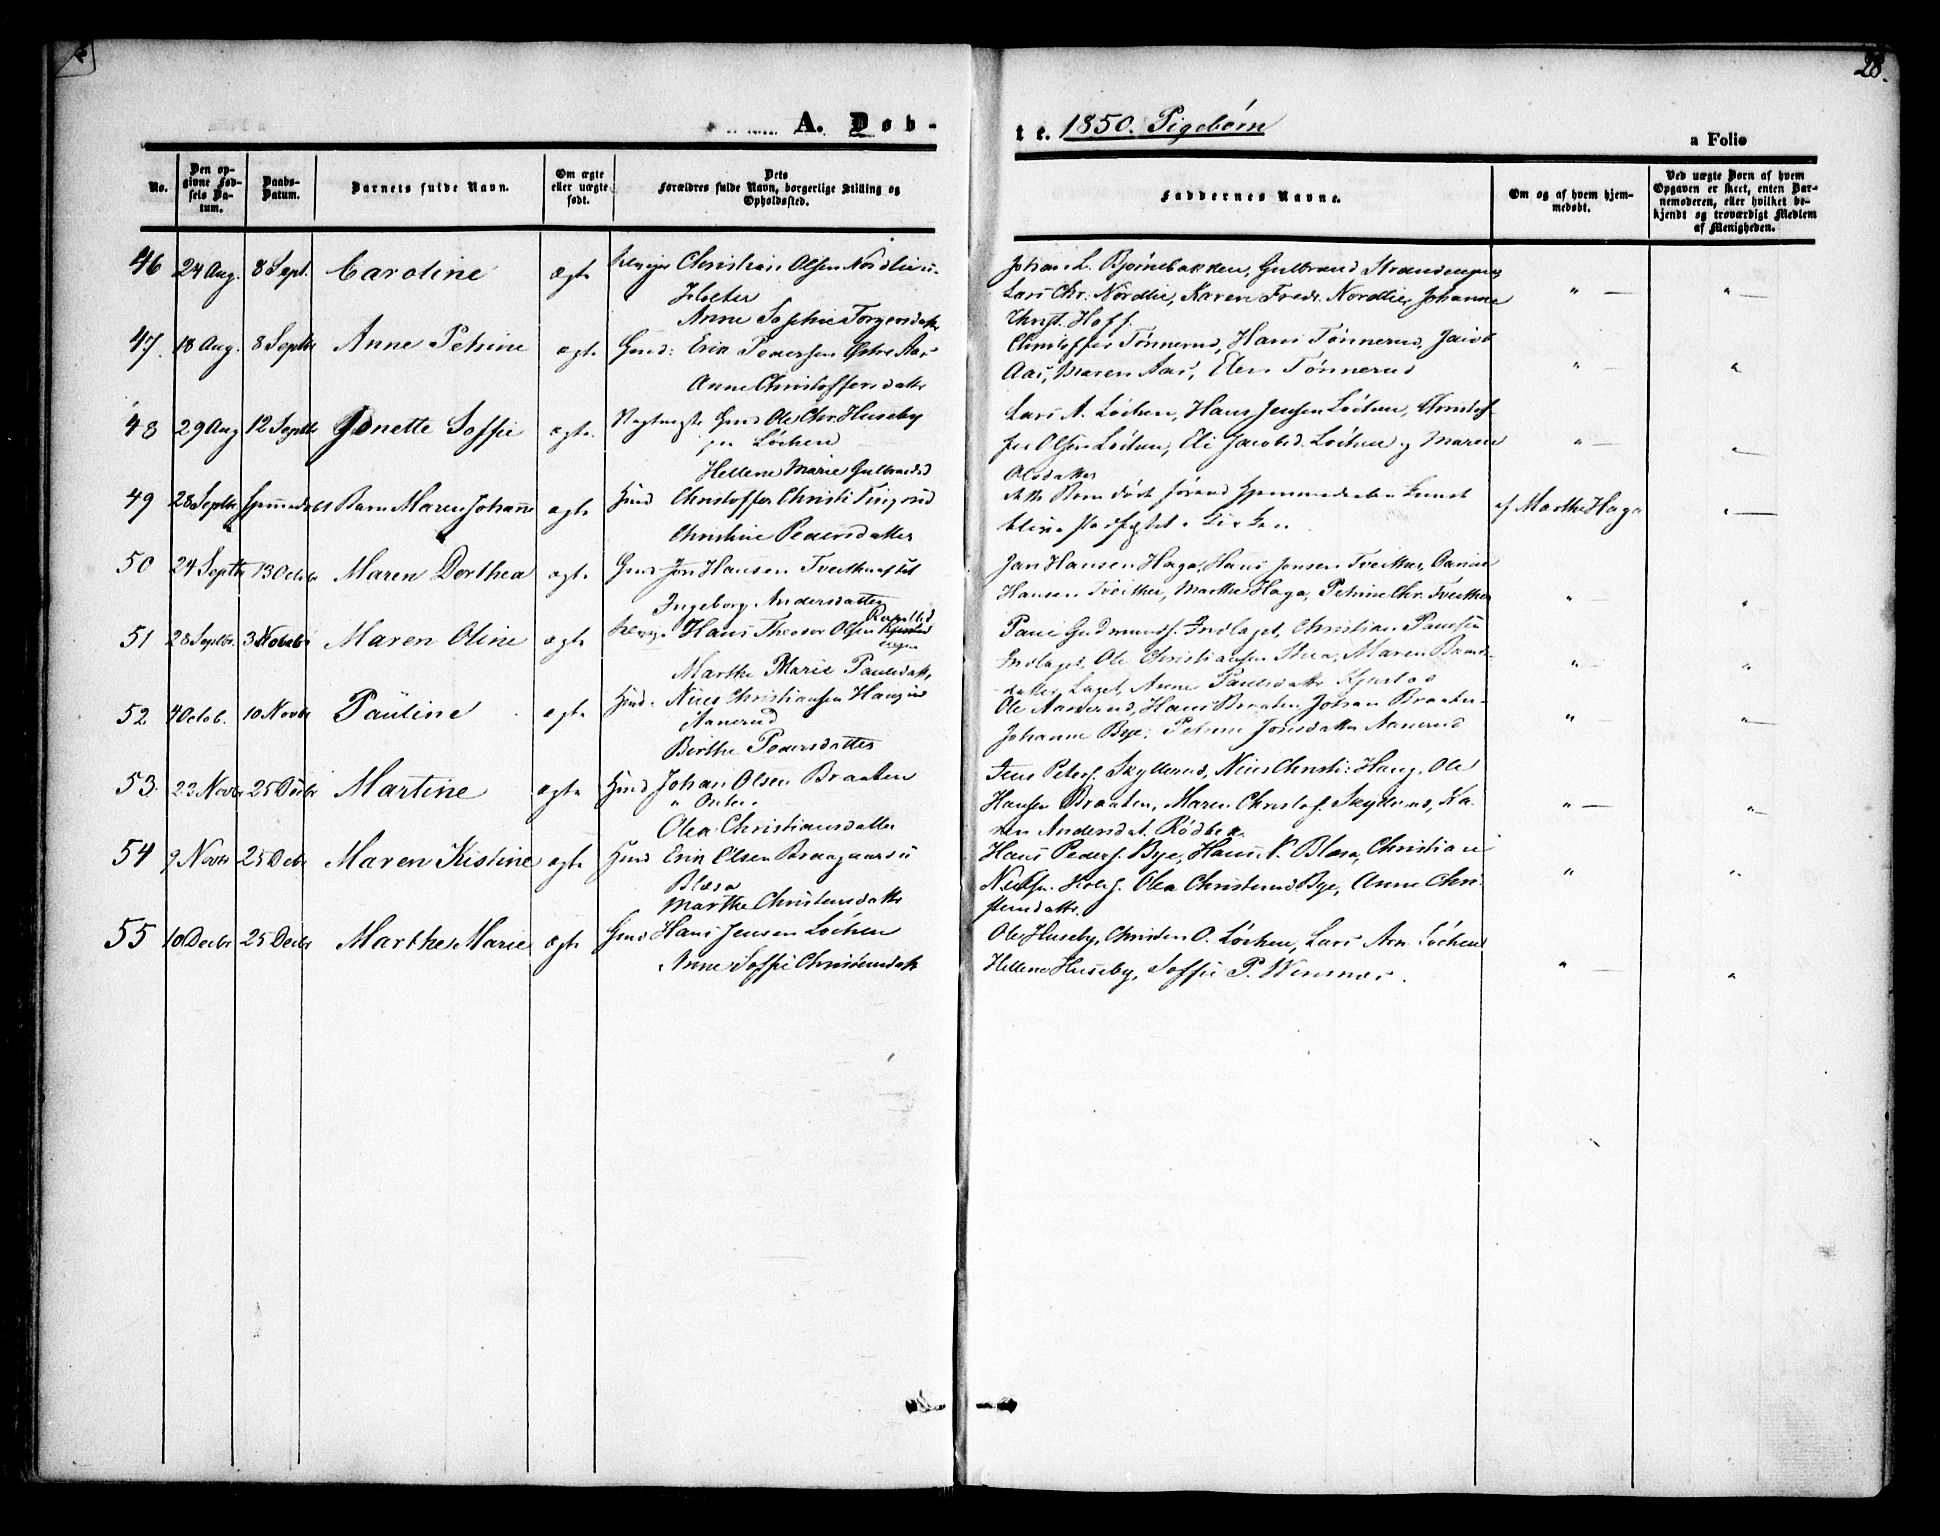 28.
A. Døb-
te. 1850. Pigebørn
a Folio
No.
Den op-
givne Fød-
sels Da-
tum.
Daabs-
Datum.
Barnets fulde Navn.
Om ægte
eller uægte
født.
Dets
Forældres fulde Navn, borgerlige Stilling og
Opholdssted.
Faddernes Navne.
Om og af hvem hjem-
medøbt.
Ved uægte Børn af hvem
Opgaven er skeet, enten Bar-
nemoderen, eller hvilket be-
kjendt og troværdigt Medlem
af Menigheden.
46 24 Aug. 8 Sept. Caroline ægte Christian Olsen Nordlie
Anne Sophie Torgersdatter
Johan L. Bjørnebakken, Gulbrand
Lars Chr. Nordlie, Karen Fredr. Nordlie, Johanne
Christ. Hoff.
47. 18 Aug. 8 Septbr Anne Petrine ægte Gmd: Erik Pedersen Østre Aas
Anne Christoffersdatter
Christoffer Tønnerud, Hans Tønnerud, Jacob
Aas, Maren Aas, Elen Tønnerud
48 29 Aug 12 Septbr Jonette Soffie ægte. Gmd Ole Chr. Huseby
Løchen
Hellene Marie Gulbrandsd
Lars A. Løchen, Hans Jensen Løchen, Christof-
fer Olsen Løchen, Eli Jacobsd. Løchen og Maren
Olsdatter
49 28 Septbr Hjemmedøbt Barn Maren Johanne ægte Hmd Christoffer Christ: Tingerud
Christine Pedersdatter
dette Barn døde førend Hjemmedaaben kunde
blive Stadfæstet i Kirken.
af Marthe Haga
50 24 Septbr 13 Octbr Maren Dorthea ægte Gmd Jon Hansen
Ingeborg Andersdatter
Jan Hansen Haga, Hans Jensen Tveither,
Hansen Tveither, Marthe Haga, Petrine Chr. Tveither
51 28 Septbr. 3 Novbr Maren Oline ægte Hans Theodor Olsen
Marthe Marie Paulsdatter
Christian Paulsen
Ole Christiansen Maren
Anne Paulsdatter Kjustad
52 4 Octob. 10 Novbr Pauline ægte Hmd. Niels Christiansen Haugerud
Aanerud
Birthe Pedersdatter
Ole Aanerud, Hans Braaten, Johan Braaten
Johanne Bye, Petrine Jonsdatter Aanerud
53. 23 Novbr 25 Decbr Martine ægte Hmd Johan Olsen Braaten
Olea Christiansdatter
Jens Peters. Skyllerud, Niels Christ: Haug, Ole
Hansen Braaten, Maren Christof. Skyllerud, Ka-
ren Andersdat. Rødbek.
54 9 Novbr 25 Decbr Maren Kistine ægte Hmd Erik Olsen
Blæsa
Marthe Christensdatter
Hans Peders. Bye, Hans N. Blæsa, Christian
Olea Christensd Bye, Anne Chri-
stensdatter.
55 10 Decbr 25 Decbr Marthe Marie ægte Gmd Hans Jensen Løchen
Anne Soffie Christensdatter
Ole Huseby, Christen O. Løchen, Lars Arn. Løchen
Hellene Huseby, Soffie P. Wennnes.